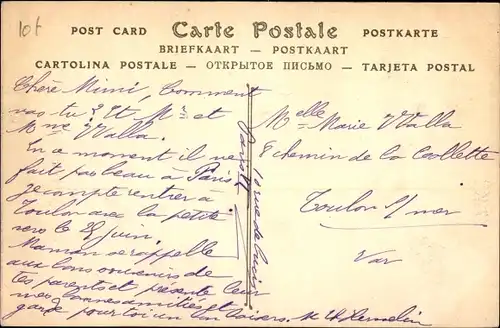 10f
POST CARD Carte Postale POSTKARTE
BRIEFKAART — POSTKAART
CARTOLINA POSTALE — ОТКРЫТОЕ ПИСЬМО — TARJETA POSTAL
Chère Mimi, Comment
vas tu ? Et Mr et
Mme Valla.
En ce moment il ne
fait pas beau à Paris
je compte rentrer à
Toulon avec la petite
vers le 25 juin.
Maman se rappelle
aux bons souvenirs de
tes parents et présente leur
mes bonnes amitiés et
garde pour toi un bon baiser. M
Melle Marie Valla
8 chemin de la Collette
Toulon s/ mer
Var
rue de